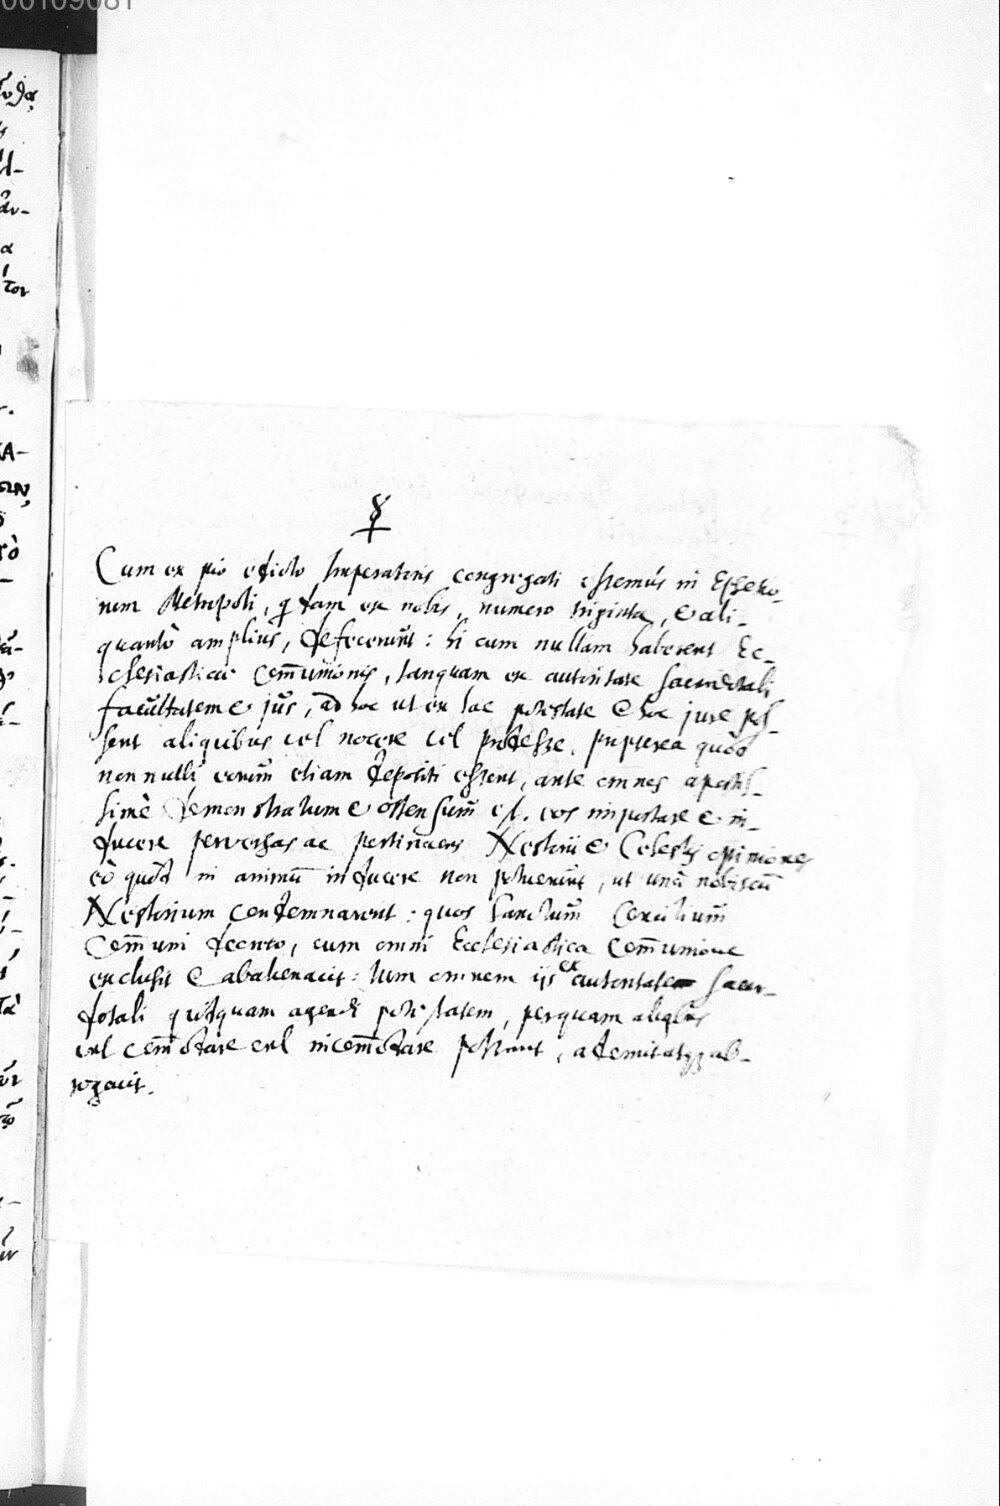 00109081
Cum ex pio edicto Imperatoris congregati essemus in Ephesio-
rum Metropoli, qdam ex nobis, numero triginta, & ali-
quantò amplius, defecerunt: hi cum nullam haberent Ec-
clesiasticae Comunionis, tanquam ex autoritate sacerdotali
facultatem & jus, ad hoc ut ex hac potestate & hoc jure pos-
sent aliquibus vel nocere vel prodesse, propterea quòd
non nulli eorum etiam depositi essent, ante omnes apertis-
simè demonstratum & ostensum est, eos importare & in-
ducere perversas ac pertinaces Nestorii & Celestij opiniones
eò quod in animu inducere non potuerunt, ut unà nobiscu
Nestorium condemnarent: quos sanctum Concilium
Comuni decreto, cum omni Ecclesiastica Comunione
exclusit & abalienavit: tum omnem iis ex autoritate sacer-
dotali quidquam agendi potestatem, per quam aliquos
vel comodare vel incomodare possent, ademit atq; ab-
rogavit.